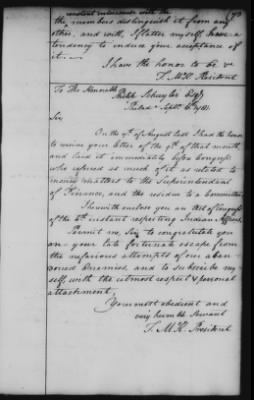 constant intercourse with the
the members distinguish it from any
other, and will, I flatter myself, have a
tendency to induce your acceptance of
it.
I have the honor to be &
T. M. K. President
To The Honorable
Philip Schuyler Esqr.
Philad. Septr. 81.
Sir
On the 9th of August last I had the honor
to receive your letter of the 9th of that month,
and laid it immediately before Congress
who referred so much of it as related to
money matters to the Superintendant
of Finance, and the residue to a Committee.
Herewith enclose you an Act of Congress
of the 5th instant respecting Indian Affairs.
Permit me, Sir, to congratulate you
on your late fortunate escape from
the nefarious attempts of our aban-
doned Enemies, and to subscribe my-
self, with the utmost respect & personal
attachment,
Your most obedient and
very humble Servant
T. M. K. President